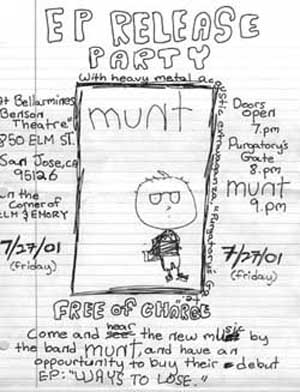 EP RELEASE
PARTY
With heavy metal acoustic extravaganza, "Purgatory's Ga
at Bellarmines
Benson
Theatre"
850 ELM ST.
San Jose, CA
95126
on the
Corner of
ELM & EMORY
7/27/01
(friday)
munt
Doors
open
7.pm
Purgatory's
Gate
8.pm
munt
9.pm
7/27/01
(friday)
FREE of CHARGE
Come and hear the new music by
the band munt, and have an
oppourtunity to buy their debut
EP: "WAYS TO LOSE."